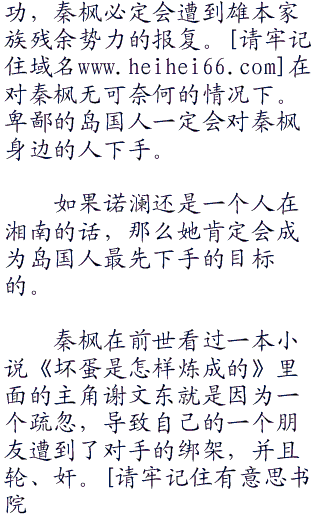 功，秦枫必定会遭到雄本家
族残余势力的报复。[请牢记
住域名www.heihei66.com]在
对秦枫无可奈何的情况下。
卑鄙的岛国人一定会对秦枫
身边的人下手。
如果诺澜还是一个人在
湘南的话，那么她肯定会成
为岛国人最先下手的目标
的。
秦枫在前世看过一本小
说《坏蛋是怎样炼成的》里
面的主角谢文东就是因为一
个疏忽，导致自己的一个朋
友遭到了对手的绑架，并且
轮、奸。[请牢记住有意思书
院